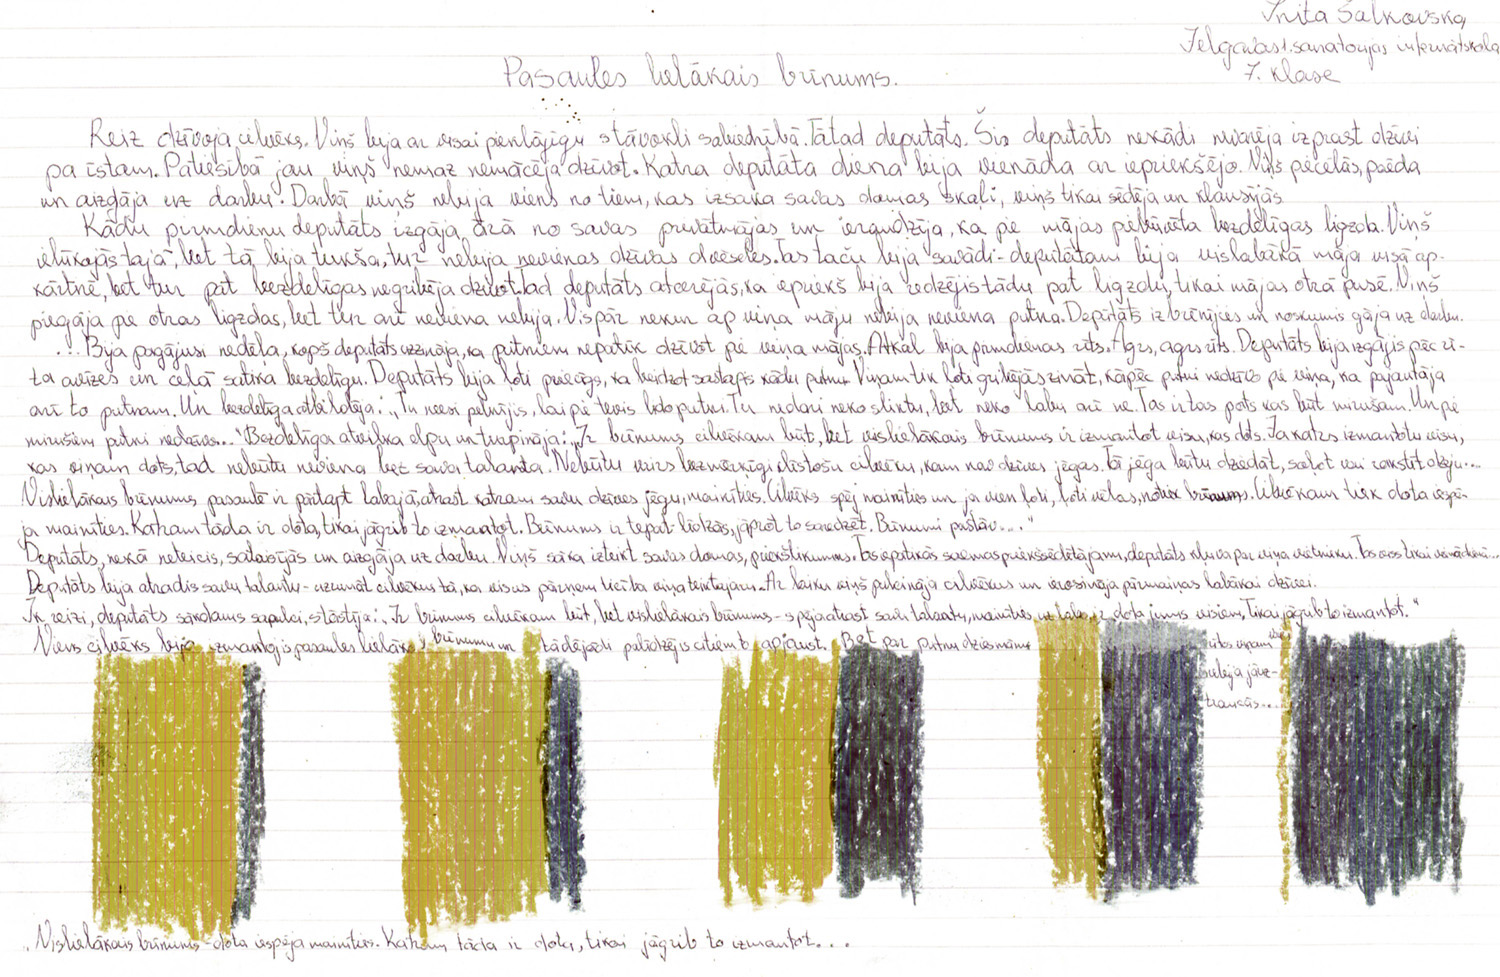 Inita Salkovska,
Jelgavas 1. sanatorijas internātskola
7. klase
Pasaules lielākais brīnums.
Reiz dzīvoja cilvēks. Viņš bija ar visai pienklājīgu stāvokli sabiedrībā. Tātad deputāts. Šis deputāts nekādi nevarēja izprast dzīvi
pa īstam. Patiesībā jau viņš nemaz nemācēja dzīvot. Katra deputāta diena bija vienāda ar iepriekšējo. Viņš pēcēlās, paēda
un aizgāja uz darbu. Darbā viņš nebija viens no tiem, kas izsaka savas domas skaļi, viņš tikai sēdēja un klausījās
Kādu pirmdienu deputāts izgāja ārā no savas privātmājas un ieraudzīja, ka pie mājas piebūvēta bezdelīgas ligzda. Viņš
ielūkojās tajā, bet tā bija tukša, tur nebija nevienas dzīvas dvēseles. Tas taču bija savādi - deputātam bija vislabākā māja visā ap-
kārtnē, bet tur pat bezdelīgas negribēja dzīvot. Tad deputāts atcerējās, ka iepriekš bija redzējis tādu pat ligzdu, tikai mājas otrā pusē. Viņš
piegāja pie otras ligzdas, bet tur arī neviena nebija. Vispār nekur ap viņa māju nebija neviena putna. Deputāts izbrīnījies un noskumis gāja uz darbu.
... Bija pagājusi nedēļa, kopš deputāts uzzināja, ka putniem nepatīk dzīvot pie viņa mājas. Atkal bija pirmdienas rīts. Agrs, agrs rīts. Deputāts bija izgājis pēc rī-
ta avīzes un ceļā satika bezdelīgu. Deputāts bija ļoti priecīgs, ka beidzot sastapis kādu putnu. Viņam tik ļoti gribējās zināt, kāpēc putni nedzīvo pie viņa, ka pajautāja
arī to putnam. Un bezdelīga atbildēja: „Tu neesi pelnījis, lai pie tevis lido putni. Tu nedari neko sliktu, bet neko labu arī nē. Tas ir tas pats kas būt mirušam. Un pie
mirušiem putni nedzīvo..." Bezdelīga atvilka elpu un turpināja: „Ir brīnums cilvēkam būt, bet vislielākais brīnums ir izmantot visu, kas dots. Ja katrs izmantotu visu,
kas viņam dots, tad nebūtu neviena bez sava talanta. Nebūtu vairs bezmērķīgi klīstošu cilvēku, kam nav dzīves jēgas. Tā jēga būtu dziedāt, saļet vai rakstīt dzeju...
Vislielākais brīnums pasaulē ir pārtapt labajā, atrast katram savu dzīves jēgu, mainīties. Cilvēks spēj mainīties un ja vien ļoti, ļoti vēlas, notiek brīnums. Cilvēkam tiek dota iespē-
ja mainīties. Katram tāda ir dota, tikai jāgrib to izmantot. Brīnums ir tepat līdzās, jāprot to saredzēt. Brīnumi pastāv...."
Deputāts, nekā neteicis, sataisījās un aizgāja uz darbu. Viņš sāka izteikt savas domas, priekšlikumus. Tas iepatikās saeimas priekšsēdētājam, deputāts kļuva par viņa vietnieku. Tas viss tikai vienā dienā...
Deputāts bija atradis savu talantu - uzrunāt cilvēkus tā, ka visus pārņem ticība viņa teiktajam. Ar laiku viņš pulcināja cilvēkus un ierosināja pārmaiņas labākai dzīvei.
Ik reizi, deputāts sākdams sapulci, stāstīja: „Ir brīnums cilvēkam būt, bet vislielākais brīnums - spēja atrast savu talantu, mainīties uz labo, ir dota jums visiem, Tikai jāgrib to izmantot."
Viens cilvēks bija izmantojis pasaules lielāko brīnumu un tādējādi palīdzējis citiem to apjaust. Bet par putnu dziesmām viņam
Vislielākais brīnums - dota iespēja mainīties. Katram tāda ir dota, tikai jāgrib to izmantot...